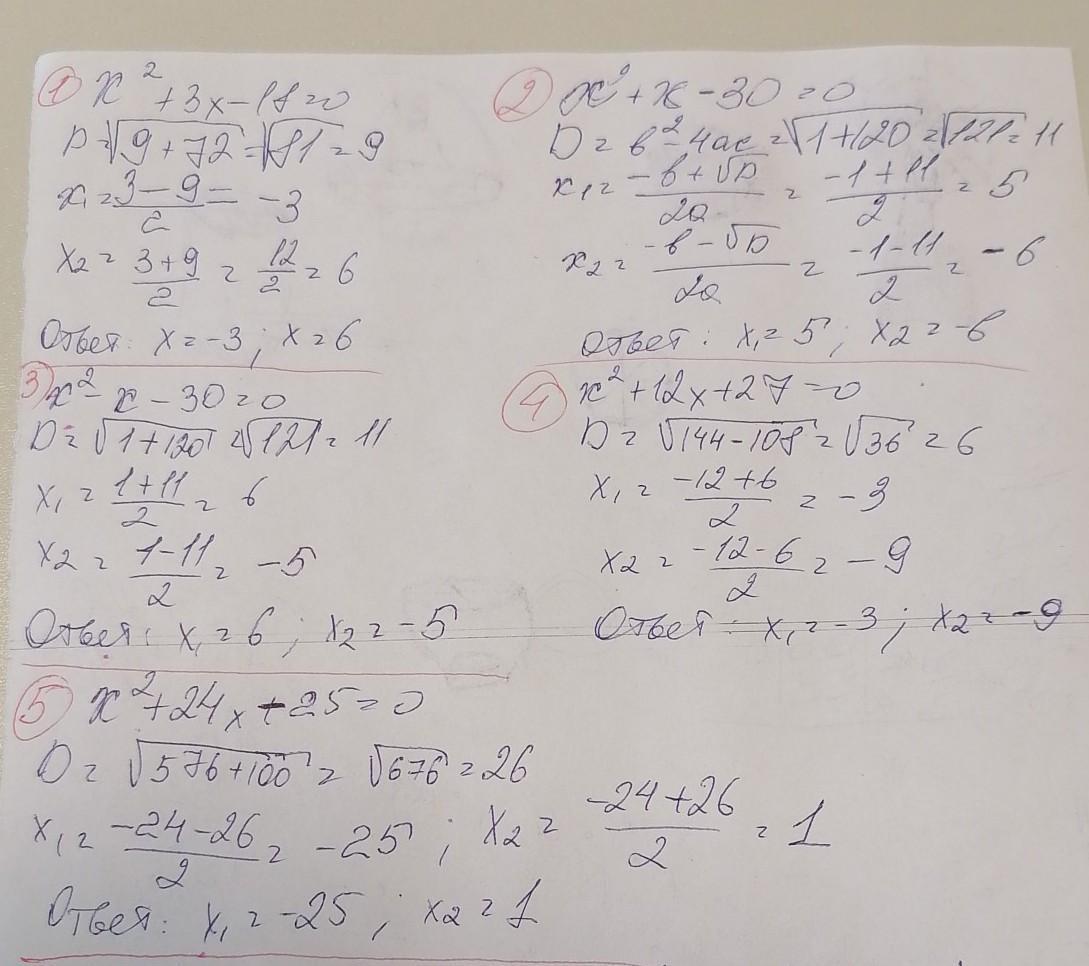 ① x² + 3x – 18 = 0
D = √9+72 = √81 = 9
x₁ = (3 – 9)/2 = –3
x₂ = (3+9)/2 = 12/2 = 6
Ответ: x = –3 ; x = 6
② x² + x – 30 = 0
D = в² – 4ac = √1+120 = √121 = 11
x₁ = (–в + √D)/2a = (–1 + 11)/2 = 5
x₂ = (–в – √D)/2a = (–1 – 11)/2 = –6
Ответ: x₁ = 5 ; x₂ = –6
3) x² – x – 30 = 0
D = √1+120 = √121 = 11
x₁ = (1+11)/2 = 6
x₂ = (1–11)/2 = –5
Ответ: x₁ = 6 ; x₂ = –5
④ x² + 12x + 27 = 0
D = √144–108 = √36 = 6
x₁ = (–12+6)/2 = –3
x₂ = (–12–6)/2 = –9
Ответ: x₁ = –3 ; x₂ = –9
⑤ x² + 24x – 25 = 0
D = √576+100 = √676 = 26
x₁ = (–24–26)/2 = –25 ; x₂ = (–24+26)/2 = 1
Ответ: x₁ = –25 ; x₂ = 1